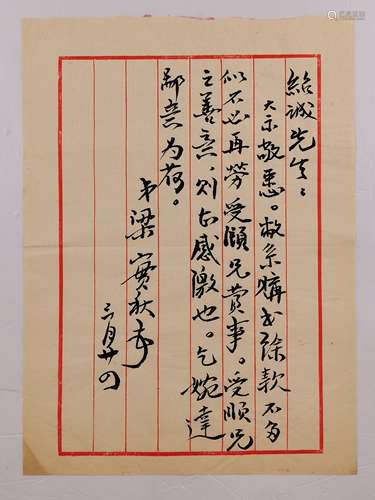 紹誠先生：
大示敬悉。敝系購書餘款不多
似不必再勞受頤兄費事。受頤兄
之善意，則至感激也。乞婉達
鄙意为荷。
弟梁實秋手
三月廿四